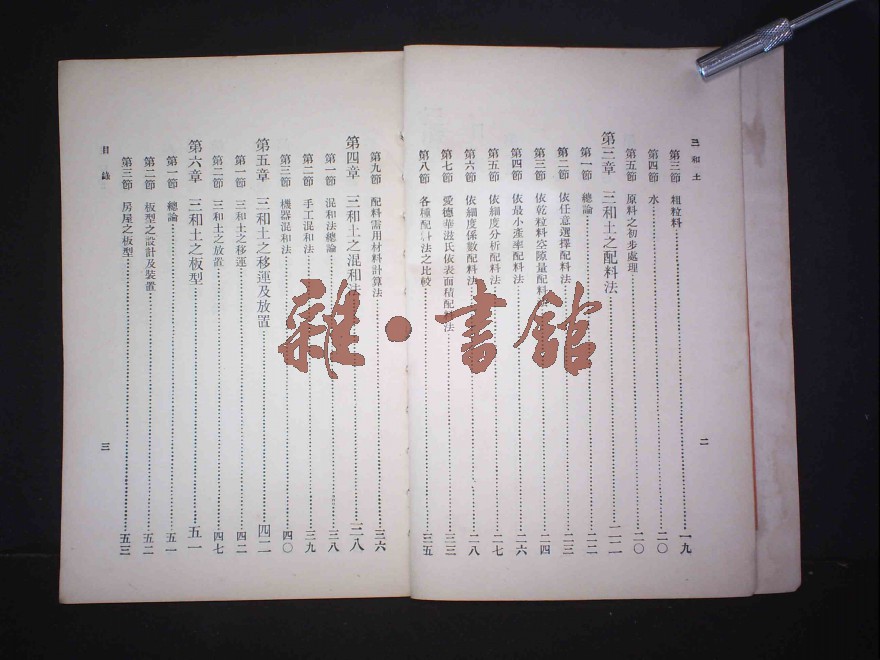 三和土
第三節 粗粒料 一九
第四節 水 二〇
第五節 原料之初步處理 二〇
第三章 三和土之配料法 二二
第一節 總論 二二
第二節 依任意選擇配料法 二三
第三節 依乾粒料空隙量配料 二四
第四節 依最小產率配料法 二六
第五節 依細度分析配料法 二七
第六節 依細度係數配料法 二八
第七節 愛德華滋氏依表面積配料法 三三
第八節 各種配料法之比較 三五
二
第九節 配料需用材料計算法 三六
第四章 三和土之混和法 三八
第一節 混和法總論 三八
第二節 手工混和法 三九
第三節 機器混和法 四〇
第五章 三和土之移運及放置 四二
第一節 三和土之移運 四二
第二節 三和土之放置 四七
第六章 三和土之板型 五一
第一節 總論 五一
第二節 板型之設計及裝置 五二
第三節 房屋之板型 五三
目錄
三
雜·書館